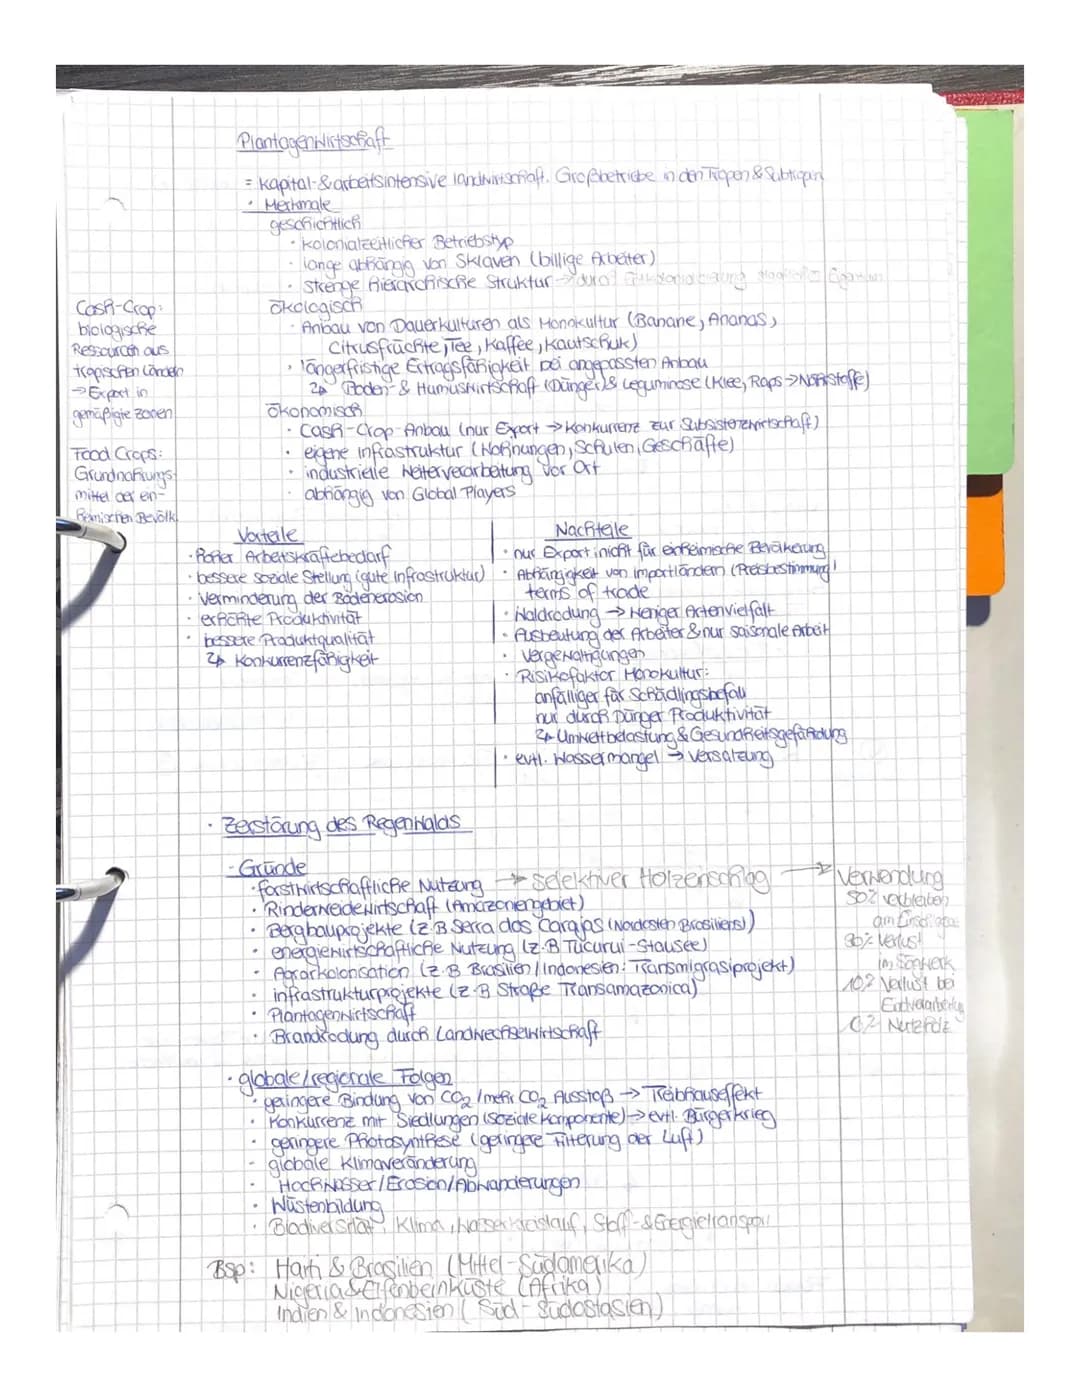 Plantagenwirtschaft
= Kapital-&arbeitsintensive landwirtschaft. Großbetriebe in den Tropen & Subtropen
· Merkmale
geschichtlich
· kolonialzeitlicher Betriebstyp
· lange abhängig von Sklaven (billige Arbeiter)
· strenge hierarchische Struktur → durch
ökologisch
· Anbau von Dauerkulturen als Monokultur (Banane, Ananas,
Citrusfrüchte, Tee, Kaffee, Kautschuk)
· längerfristige Ertragsfähigkeit bei angepassten Anbau
↳ Boden- & Humuswirtschaft (Dünger) & Leguminose (Klee, Raps → Nährstoffe)
ökonomisch
· Cash-Crop-Anbau (nur Export → Konkurrenz zur Subsistenzwirtschaft)
· eigene Infrastruktur (Wohnungen, Schulen, Geschäfte)
· industrielle Weiterverarbeitung vor Ort
· abhängig von Global Players
Cash-Crop:
biologische
Ressourcen aus
tropischen Ländern
→ Export in
gemäßigte Zonen
Food Crops:
Grundnahrungs-
mittel der ein-
heimischen Bevölk.
Vorteile
· hoher Arbeitskräftebedarf
· bessere soziale Stellung (gute Infrastruktur)
· Verminderung der Bodenerosion
· erhöhte Produktivität
· bessere Produktqualität
↳ Konkurrenzfähigkeit
Nachteile
· nur Export, nicht für einheimische Bevölkerung
· Abhängigkeit von Importländern (Preisbestimmung!
terms of trade
· Waldrodung → weniger Artenvielfalt
· Ausbeutung der Arbeiter & nur saisonale Arbeit
· Vergewaltigungen
· Risikofaktor Monokultur:
anfälliger für Schädlingsbefall
nur durch Dünger Produktivität
↳ Umweltbelastung & Gesundheitsgefährdung
· evtl. Wassermangel → Versalzung
· Zerstörung des Regenwalds
- Gründe
· forstwirtschaftliche Nutzung → selektiver Holzeinschlag → Verwendung
· Rinderweidewirtschaft (Amazoniengebiet)
· Bergbauprojekte (z.B Serra dos Carajas (Nordosten Brasiliens))
· energiewirtschaftliche Nutzung (z.B Tucurui-Stausee)
· Agrarkolonisation (z.B Brasilien/Indonesien: Transmigrasiprojekt)
· infrastrukturprojekte (z.B Straße Transamazonica)
· Plantagenwirtschaft
· Brandrodung durch Landwechselwirtschaft
50% verbleiben
am
Verlust
im Sägewerk
10% Verlust bei
Endverarbeitung
Nutzholz
· globale/regionale Folgen
· geringere Bindung von CO₂ / mehr CO₂ Ausstoß → Treibhauseffekt
· Konkurrenz mit Siedlungen (soziale Komponente) → evtl. Bürgerkrieg
· geringere Photosynthese (geringere Filterung der Luft)
- globale Klimaveränderung
· Hochwasser/Erosion/Abwanderungen
· Wüstenbildung
· Biodiversität, Klima, Wasserkreislauf, Stoff-&Energietransport
Bsp: Haiti & Brasilien (Mittel-Südamerika)
Nigeria & Elfenbeinküste (Afrika)
Indien & Indonesien (Süd-Südostasien)